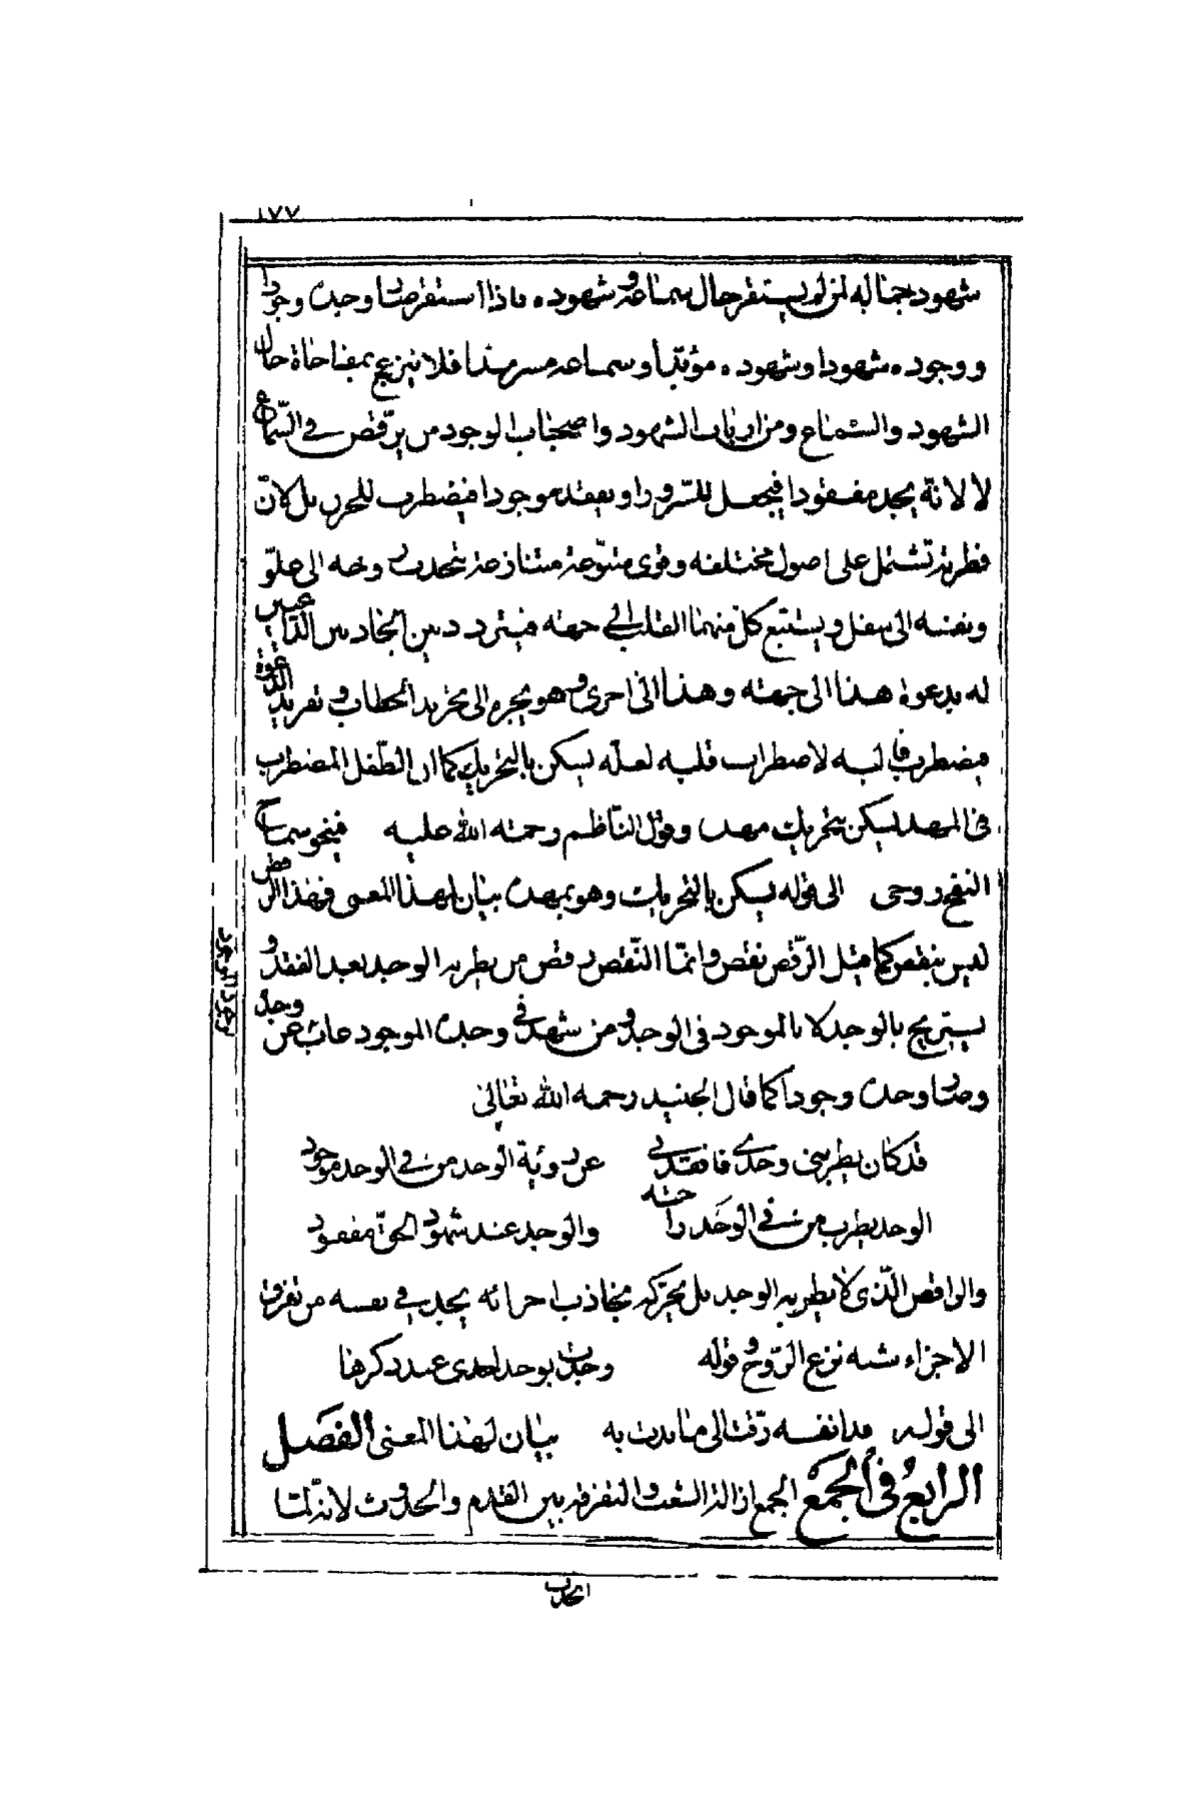 ١٧٧
شهود جماله لمن لم يستقر حال سماعه وشهوده فاذا استقر صار وجده وجودا
ووجوده شهودا وشهوده مؤبّدا وسماعه سرمدا فلا ينزعج بمفاجاة حال
الشهود والسّماع ومن ارباب الشهود واصحاب الوجود من يرقص في السّماع
لا لانّه يجد مفقودا فيجعل للسّرور او يفقد موجودا فيضطرب للحزن بل كانّ
فطرته تشتمل على اصول مختلفة وقوى متنوّعة متنازعة تنجذب روحه الى علوّ
ونفسه الى سفل ويستتبع كلّ منهما القلب الى جهته فيتردد بين الجاذبين الداعيين
له يدعوه هذا الى جهته وهذا الى اخرى وهو يجره الى تجريد الخطاب وتفريد الدعوة
فيضطرب قالبه لاضطراب قلبه لعلّه يسكن بالتحريك كما ان الطّفل المضطرب
فى المهد يسكن بتحريك مهده وقول النّاظم رحمة الله عليه فينحو سماع
النفخ روحى الى قوله يسكن بالتحريك وهو بمهده بيان لهذا المعنى فهذا الرقص
ليس بنقص كما قيل الرّقص نقص وانمّا النّقص رقص من يطربه الوجد بعد الفقد و
يستريح بالوجد لا بالموجود فى الوجد ومن شهد فى وجده الموجود غاب عن وجده
وصار وجده وجودا كما قال الجنيد رحمه الله تعالى
قد كان يطربنى وجدى فافقدنى عن رؤية الوجد من فى الوجد موجود
الوجد يطرب من فى الوجد راحته والوجد عند شهود الحقّ مفقود
والراقص الّذى لا يطربه الوجد بل يحركه تجاذب اجزائه يجد فى نفسه من تفرق
الاجزاء شبه نزع الرّوح وقوله وجدت بوجد اخذى عند ذكرها
الى قوله فذا نفسه رقّت الى ما بدت به بيان لهذا المعنى الفصل
الرابع فى الجمع الجمع ازالة الشعث والتفرقة بين القدم والحدوث لانّه لمّا
وجود الموجود
انجذب